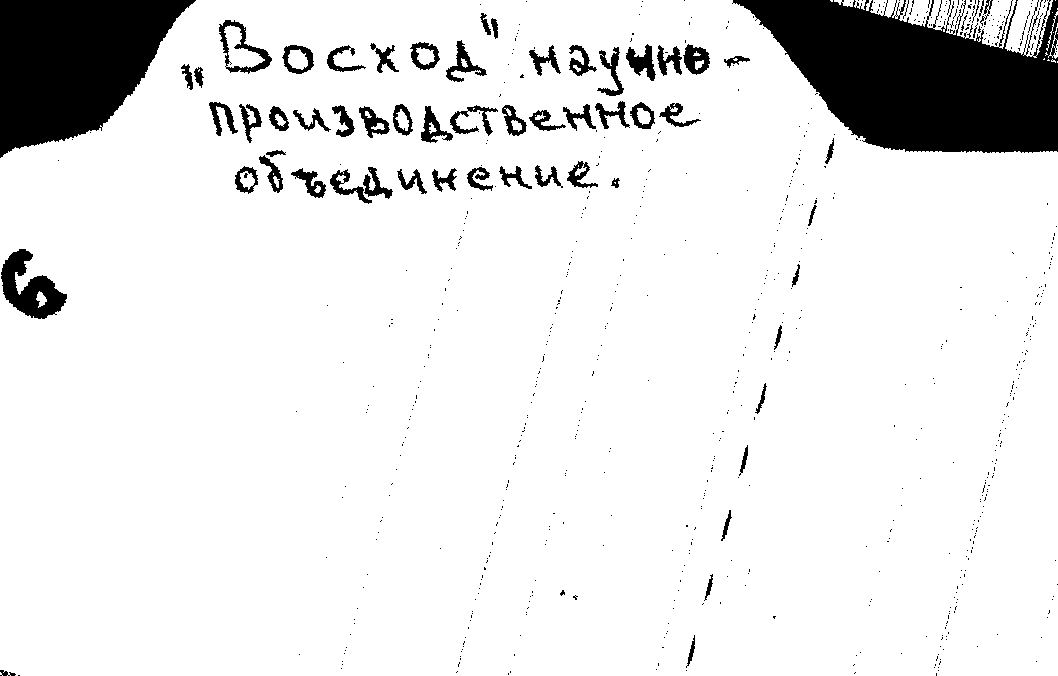 „Восход" научно-
производственное
объединение.
6